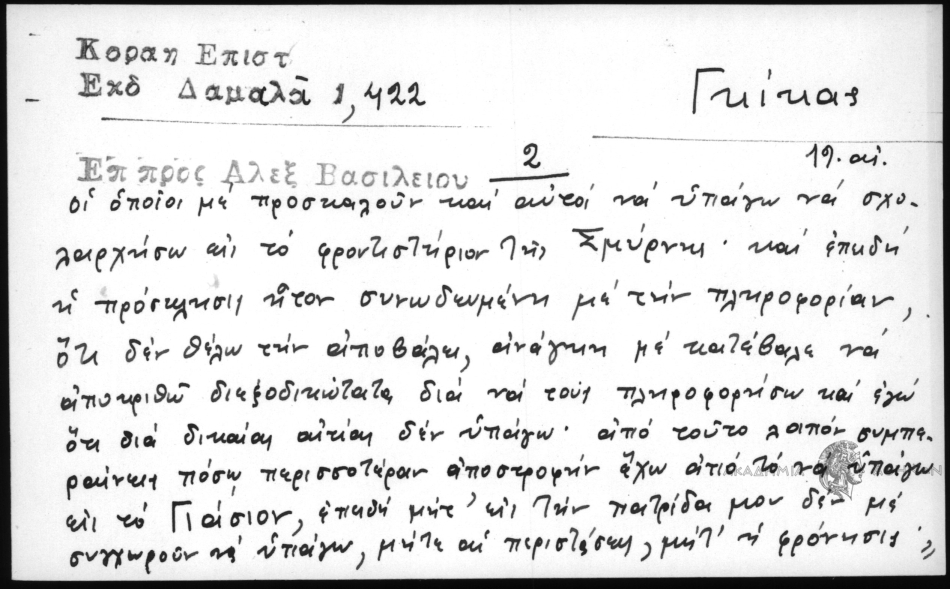 Κοραη Επιστ
Εκδ Δαμαλᾶ 1, 422
Γκίκας
19. αἰ.
Επ προς Αλεξ Βασιλειου 2
οἱ ὁποῖοι μέ προσκαλοῦν καί αὐτοί νά ὑπάγω νά σχο-
λαρχήσω εἰς τό φροντιστήριον τῆς Σμύρνης· καί ἐπειδή
ἡ πρόσκλησις ἦτον συνωδευμένη μέ τήν πληροφορίαν,
ὅτι δέν θέλω τήν ἀποβάλει, ἀνάγκη μέ κατέβαλε νά
ἀποκριθῶ διεξοδικώτατα διά νά τούς πληροφορήσω καί ἐγώ
ὅτι διά δικαίας αἰτίας δέν ὑπάγω· ἀπό τοῦτο λοιπόν συμπε-
ραίνεις πόσῳ περισσοτέραν ἀποστροφήν ἔχω ἀπό τό νά ὑπάγω
εἰς τό Γιάσιον, ἐπειδή μήτ' εἰς τήν πατρίδα μου δέν μέ
συγχωροῦν νά ὑπάγω, μήτε αἱ περιστάσεις, μήτ' ἡ φρόνησις·,,